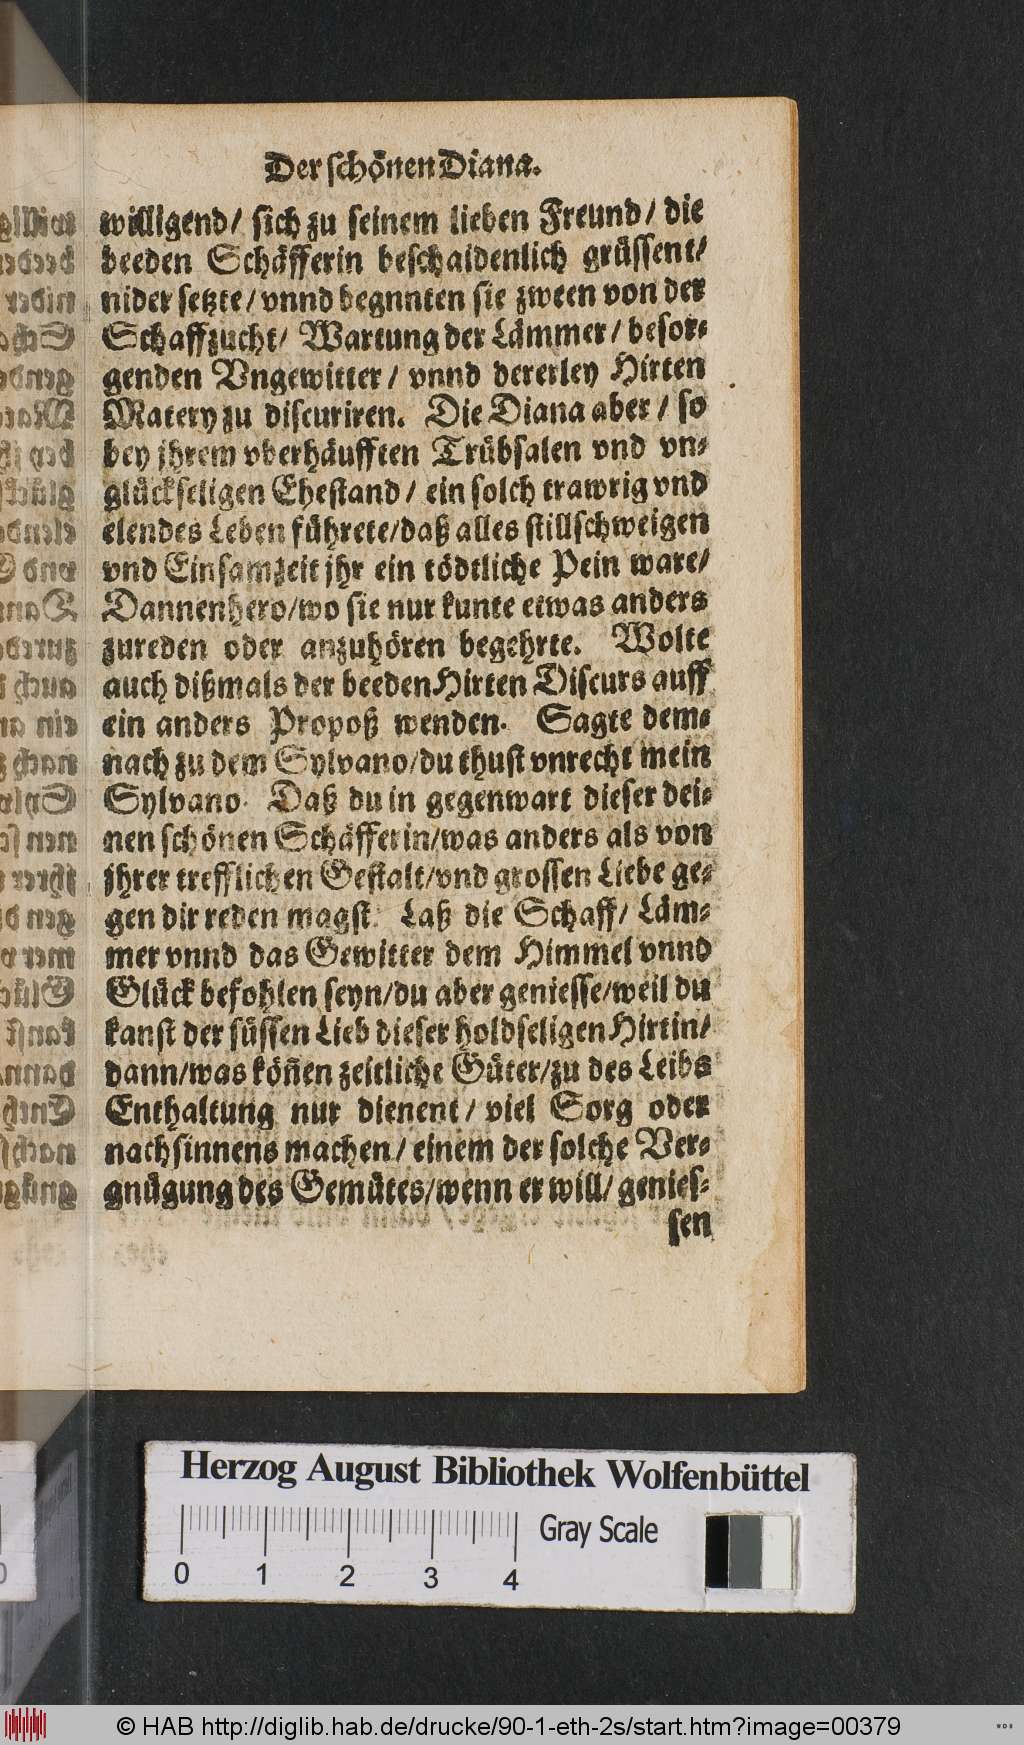 Der schönen Diana.
willigend/ sich zu seinem lieben Freund/ die
beeden Schäfferin beschaidenlich grüssent/
nider setzte/ vnnd begnnten sie zween von der
Schaffzucht/ Wartung der Lämmer/ besor-
genden Vngewitter/ vnnd dererley Hirten
Matery zu discuriren. Die Diana aber/ so
bey jhrem vberhäufften Trübsalen vnd vn-
glückseligen Ehestand/ ein solch trawrig vnd
elendes Leben führete/ daß alles stillschweigen
vnd Einsamzeit jhr ein tödtliche Pein ware/
Dannenhero/ wo sie nur kunte etwas anders
zureden oder anzuhören begehrte. Wolte
auch dißmals der beeden Hirten Discurs auff
ein anders Propoß wenden. Sagte dem-
nach zu dem Sylvano/ du thust vnrecht mein
Sylvano. Daß du in gegenwart dieser dei-
nen schönen Schäfferin/ was anders als von
jhrer trefflichen Gestalt/ vnd grossen Liebe ge-
gen dir reden magst. Laß die Schaff/ Läm-
mer vnnd das Gewitter dem Himmel vnnd
Glück befohlen seyn/ du aber geniesse/ weil du
kanst der süssen Lieb dieser holdseligen Hirtin/
dann/ was köñen zeitliche Güter/ zu des Leibs
Enthaltung nur dienent/ viel Sorg oder
nachsinnens machen/ einem der solche Ver-
gnügung des Gemütes/ wenn er will/ genies-
sen
Herzog August Bibliothek Wolfenbüttel
Gray Scale
0 1 2 3 4
© HAB http://diglib.hab.de/drucke/90-1-eth-2s/start.htm?image=00379